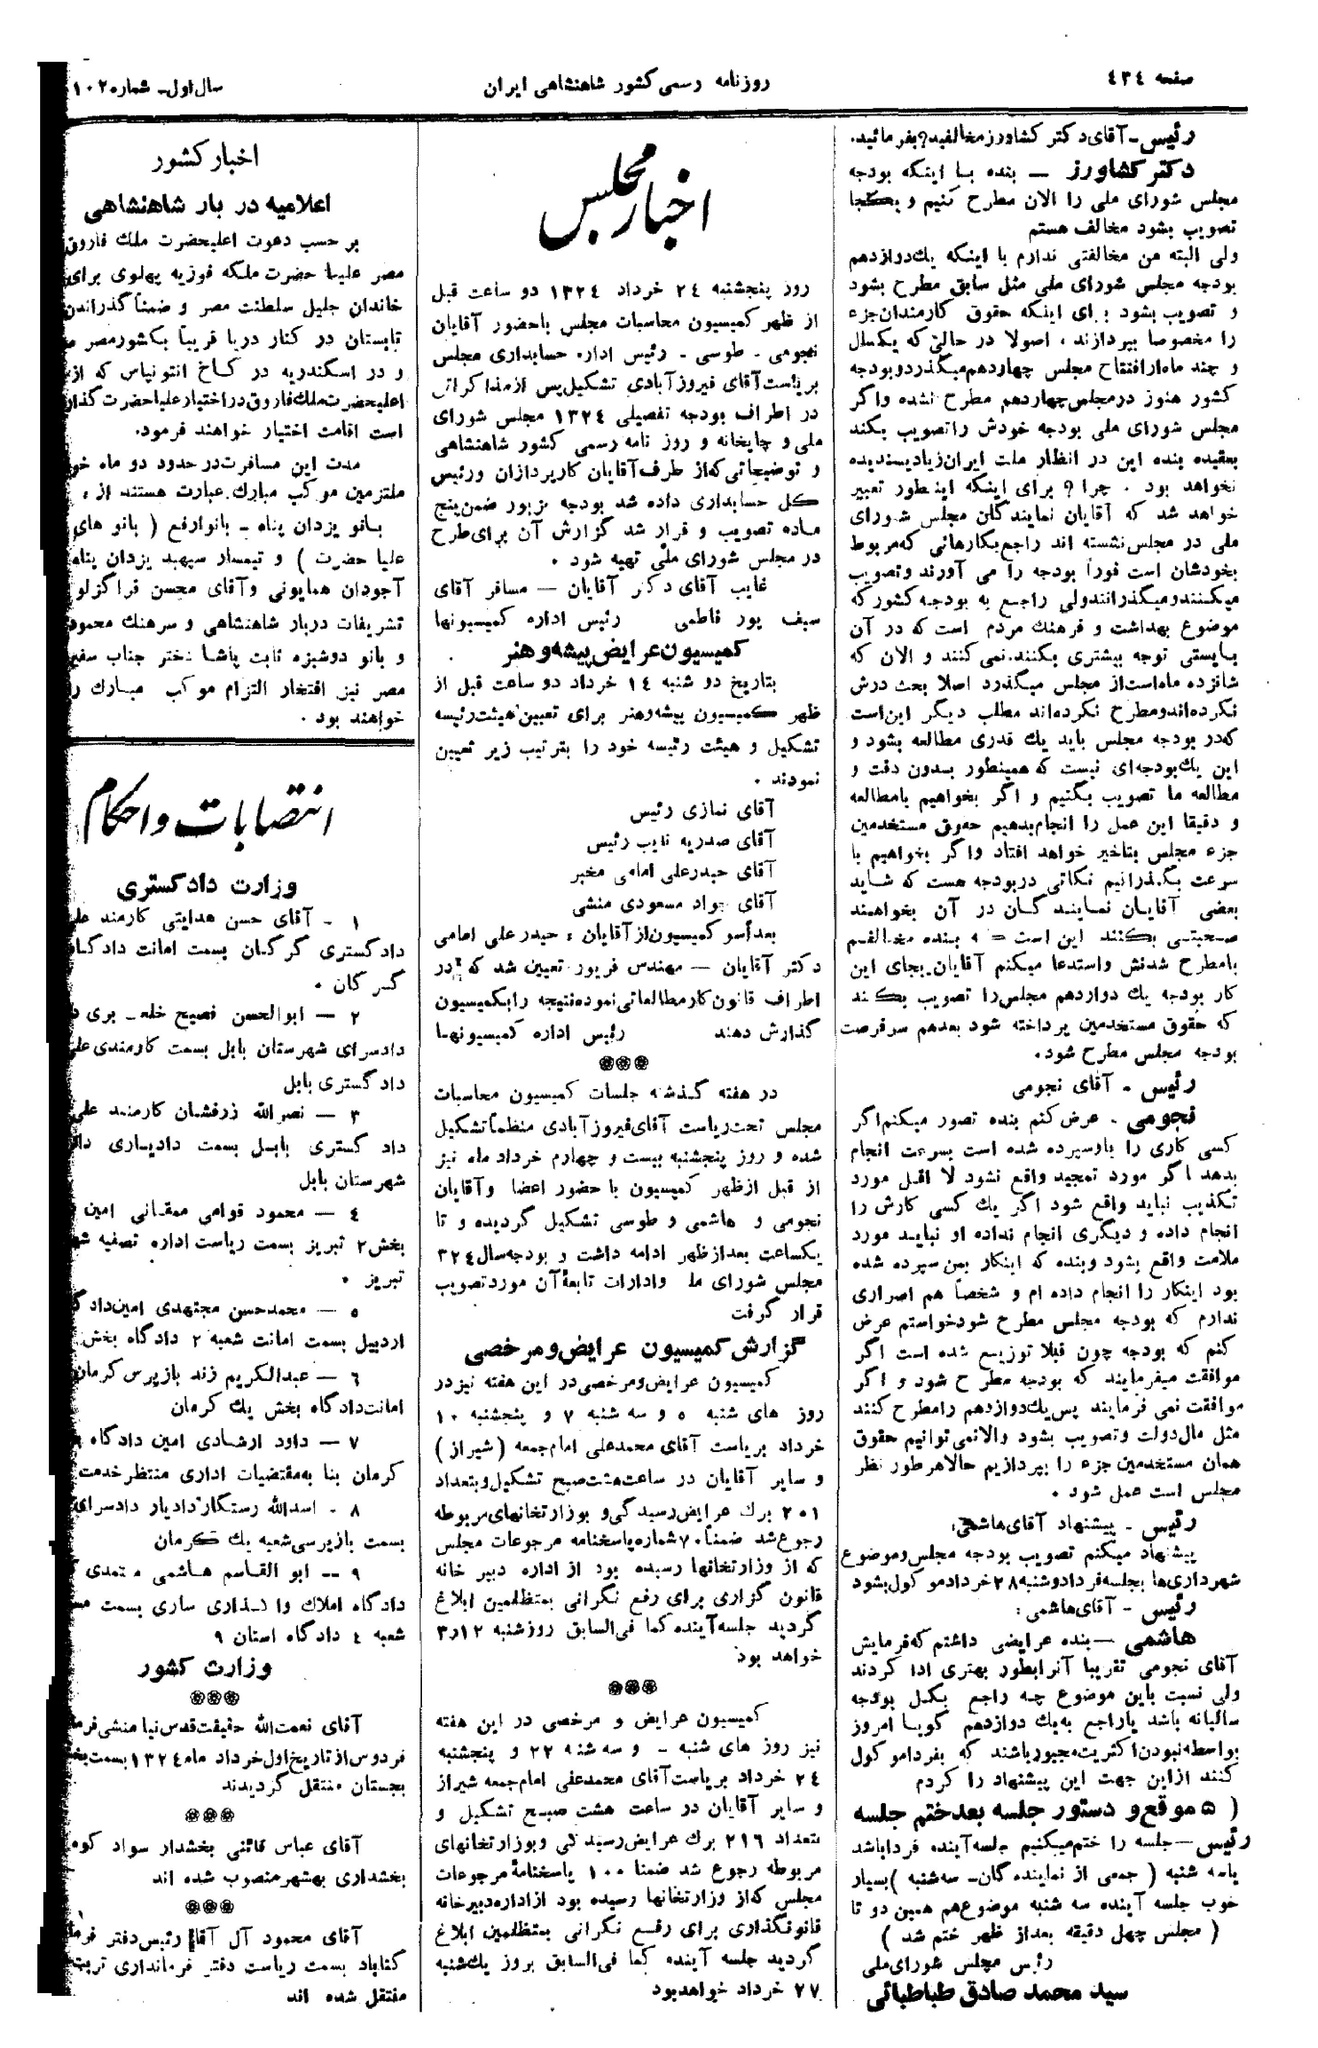 صفحه ٤٣٤
روزنامه رسمی کشور شاهنشاهی ایران
سال اول ـ شماره ١٠٢
رئیس ـ آقای دکتر کشاورز مخالفید؟ بفرمائید.
دکتر کشاورز — بنده با اینکه بودجه
مجلس شورای ملی را الان مطرح کنیم و یکجا
تصویب بشود مخالف هستم
ولی البته من مخالفتی ندارم با اینکه یك دوازدهم
بودجه مجلس شورای ملی مثل سابق مطرح بشود
و تصویب بشود برای اینکه حقوق کارمندان جزء
را مخصوصا بپردازند ، اصولا در حالتی که یکسال
و چند ماه از افتتاح مجلس چهاردهم میگذرد و بودجه
کشور هنوز در مجلس چهاردهم مطرح نشده و اگر
مجلس شورای ملی بودجه خودش را تصویب بکند
بعقیده بنده این در انظار ملت ایران زیاد پسندیده
نخواهد بود . چرا ؟ برای اینکه اینطور تعبیر
خواهد شد که آقایان نمایندگان مجلس شورای
ملی در مجلس نشسته اند راجع بکارهائی که مربوط
بخودشان است فوراً بودجه را می آورند و تصویب
میکنند و میگذرانند ولی راجع به بودجه کشور که
موضوع بهداشت و فرهنك مردم است که در آن
بایستی توجه بیشتری بکنند نمی کنند و الان که
شانزده ماه است از مجلس میگذرد اصلا بحث درش
نکرده اند و مطرح نکرده اند مطلب دیگر این است
که در بودجه مجلس باید یك قدری مطالعه بشود و
این یك بودجه ای نیست که همینطور بدون دقت و
مطالعه ما تصویب بکنیم و اگر بخواهیم با مطالعه
و دقیقا این عمل را انجام بدهیم حقوق مستخدمین
جزء مجلس بتاخیر خواهد افتاد و اگر بخواهیم با
سرعت بگذرانیم نکاتی در بودجه هست که شاید
بعضی آقایان نمایندگان در آن بخواهند
صحبتی بکنند این است که بنده مخالفم
با مطرح شدنش و استدعا میکنم آقایان بجای این
کار بودجه یك دوازدهم مجلس را تصویب بکنند
که حقوق مستخدمین پرداخته شود بعدهم سر فرصت
بودجه مجلس مطرح شود .
رئیس ـ آقای نجومی
نجومی ـ عرض کنم بنده تصور میکنم اگر
کسی کاری را باو سپرده شده است بسرعت انجام
بدهد اگر مورد تمجید واقع نشود لا اقل مورد
تکذیب نباید واقع شود اگر یك کسی کارش را
انجام داده و دیگری انجام نداده او نباید مورد
ملامت واقع بشود و بنده که اینکار بمن سپرده شده
بود اینکار را انجام داده ام و شخصاً هم اصراری
ندارم که بودجه مجلس مطرح شود خواستم عرض
کنم که بودجه چون قبلا توزیع شده است اگر
موافقت میفرمایند که بودجه مطرح شود و اگر
موافقت نمی فرمایند پس یك دوازدهم را مطرح کنند
مثل مال دولت و تصویب بشود و الا نمی توانیم حقوق
همان مستخدمین جزء را بپردازیم حالا هر طور نظر
مجلس است عمل شود .
رئیس ـ پیشنهاد آقای هاشمی :
پیشنهاد میکنم تصویب بودجه مجلس و موضوع
شهرداری ها بجلسه فردا دوشنبه ٢٨ خرداد موکول بشود
رئیس ـ آقای هاشمی :
هاشمی — بنده عرایضی داشتم که فرمایش
آقای نجومی تقریبا آنرا بطور بهتری ادا کردند
ولی نسبت باین موضوع چه راجع بکل بودجه
سالیانه باشد یا راجع به یك دوازدهم گویا امروز
بواسطه نبودن اکثریت مجبور باشند که بفردا موکول
کنند از این جهت این پیشنهاد را کردم
( ٥ موقع و دستور جلسه بعد ختم جلسه
رئیس — جلسه را ختم میکنیم جلسه آینده فردا باشد
یا سه شنبه ( جمعی از نماینده گان ـ سه شنبه ) بسیار
خوب جلسه آینده سه شنبه موضوع هم همین دو تا
( مجلس چهل دقیقه بعد از ظهر ختم شد )
رئیس مجلس شورای ملی
سید محمد صادق طباطبائی
اخبار مجلس
روز پنجشنبه ٢٤ خرداد ١٣٢٤ دو ساعت قبل
از ظهر کمیسیون محاسبات مجلس با حضور آقایان
نجومی ـ طوسی ـ رئیس اداره حسابداری مجلس
بریاست آقای فیروزآبادی تشکیل پس از مذاکراتی
در اطراف بودجه تفصیلی ١٣٢٤ مجلس شورای
ملی و چاپخانه و روز نامه رسمی کشور شاهنشاهی
و توضیحاتی که از طرف آقایان کارپردازان و رئیس
کل حسابداری داده شد بودجه مزبور ضمن پنج
ماده تصویب و قرار شد گزارش آن برای طرح
در مجلس شورای ملی تهیه شود .
غایب آقای دکتر آقایان — مسافر آقای
سیف پور فاطمی رئیس اداره کمیسیونها
کمیسیون عرایض پیشه و هنر
بتاریخ دو شنبه ١٤ خرداد دو ساعت قبل از
ظهر کمیسیون پیشه و هنر برای تعیین هیئت رئیسه
تشکیل و هیئت رئیسه خود را بترتیب زیر تعیین
نمودند .
آقای نمازی رئیس
آقای صدریه نایب رئیس
آقای حیدرعلی امامی مخبر
آقای جواد مسعودی منشی
بعداً سو کمیسیون از آقایان : حیدر علی امامی
دکتر آقایان — مهندس فریور تعیین شد که در
اطراف قانون کار مطالعاتی نموده نتیجه را بکمیسیون
گذارش دهند رئیس اداره کمیسیونها
در هفته گذشته جلسات کمیسیون محاسبات
مجلس تحت ریاست آقای فیروزآبادی منظماً تشکیل
شده و روز پنجشنبه بیست و چهارم خرداد ماه نیز
از قبل از ظهر کمیسیون با حضور اعضا و آقایان
نجومی و هاشمی و طوسی تشکیل گردیده و تا
یکساعت بعد از ظهر ادامه داشت و بودجه سال ٣٢٤
مجلس شورای ملی و ادارات تابعهٔ آن مورد تصویب
قرار گرفت
گزارش کمیسیون عرایض و مرخصی
کمیسیون عرایض و مرخصی در این هفته نیز در
روز های شنبه ٥ و سه شنبه ٧ و پنجشنبه ١٠
خرداد بریاست آقای محمدعلی امام جمعه ( شیراز )
و سایر آقایان در ساعت هشت صبح تشکیل و بتعداد
٢٠١ برك عرایض رسیدگی و بوزارتخانهای مربوطه
رجوع شد ضمناً ٧٠ شماره پاسخنامه مرجوعات مجلس
که از وزارتخانها رسیده بود از اداره دبیر خانه
قانون گزاری برای رفع نگرانی بمتظلمین ابلاغ
گردید جلسه آینده کما فی السابق روز شنبه ٣/١٢
خواهد بود
کمیسیون عرایض و مرخصی در این هفته
نیز روز های شنبه ـ و سه شنبه ٢٢ و پنجشنبه
٢٤ خرداد بریاست آقای محمدعلی امام جمعه شیراز
و سایر آقایان در ساعت هشت صبح تشکیل و
بتعداد ٢١٦ برك عرایض رسیدگی و بوزارتخانهای
مربوطه رجوع شد ضمنا ١٠٠ پاسخنامهٔ مرجوعات
مجلس که از وزارتخانها رسیده بود از اداره دبیرخانه
قانونگذاری برای رفع نگرانی بمتظلمین ابلاغ
گردید جلسه آینده کما فی السابق بروز یك شنبه
٢٧ خرداد خواهد بود
اخبار کشور
اعلامیه در بار شاهنشاهی
بر حسب دعوت اعلیحضرت ملك فاروق
مصر علیا حضرت ملکه فوزیه پهلوی برای
خاندان جلیل سلطنت مصر و ضمناً گذراندن
تابستان در کنار دریا قریباً بکشور مصر
و در اسکندریه در کاخ انتونیاس که از
اعلیحضرت ملك فاروق در اختیار علیا حضرت
است اقامت اختیار خواهند فرمود.
مدت این مسافرت در حدود دو ماه
ملتزمین موکب مبارك عبارت هستند از :
بانو یزدان پناه ـ بانو ارفع ( بانو های
علیا حضرت ) و تیمسار سپهبد یزدان پناه
آجودان همایونی و آقای محسن قراگزلو
تشریفات دربار شاهنشاهی و سرهنك محمود
و بانو دوشیزه ثابت پاشا دختر جناب سفیر
مصر نیز افتخار التزام موکب مبارك را
خواهند بود .
انتصابات و احکام
وزارت دادگستری
١ ـ آقای حسن هدایتی کارمند
دادگستری گرگان بسمت امانت دادگاه
گرگان .
٢ — ابوالحسن فصیح
دادسرای شهرستان بابل بسمت کارمندی
دادگستری بابل
٣ — نصرالله زرفشان کارمند
داد گستری بابل بسمت دادیاری
شهرستان بابل
٤ — محمود قوامی ممقانی امین
بخش ٢ تبریز بسمت ریاست اداره تصفیه
تبریز .
٥ — محمدحسن مجتهدی امین
اردبیل بسمت امانت شعبه ٢ دادگاه بخش
٦ — عبدالکریم زند بازپرس کرمان
امانت دادگاه بخش یك کرمان
٧ — داود ارشادی امین دادگاه
کرمان بنا به مقتضیات اداری منتظر خدمت
٨ ـ اسدالله رستگار دادیار دادسرای
بسمت بازپرسی شعبه یك کرمان
٩ — ابو القاسم هاشمی معتمدی
دادگاه املاك واگذاری ساری بسمت
شعبه ٤ دادگاه استان ٩
وزارت کشور
آقای نعمت الله حقیقت قدس نیا منشی
فردوس از تاریخ اول خرداد ماه ١٣٢٤ بسمت
بجستان منتقل گردیدند
آقای عباس قائنی بخشدار سواد کوه
بخشداری بهشهر منصوب شده اند
آقای محمود آل آقا رئیس دفتر
گناباد بسمت ریاست دفتر فرمانداری تربت
منتقل شده اند